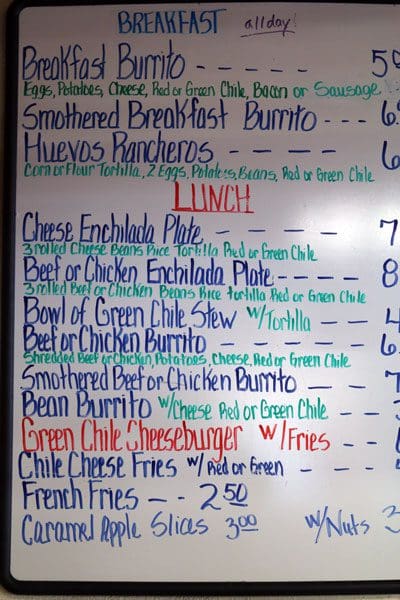 BREAKFAST all day!
Breakfast Burrito - - - - - 5
Eggs, Potatoes, Cheese, Red or Green Chile, Bacon or Sausage
Smothered Breakfast Burrito - - - 6
Huevos Rancheros - - - - - 6
Corn or Flour Tortilla, 2 Eggs, Potatoes, Beans, Red or Green Chile
LUNCH
Cheese Enchilada Plate - - - - - 7
3 rolled Cheese Beans Rice Tortilla Red or Green Chile
Beef or Chicken Enchilada Plate - - - - 8
3 rolled Beef or Chicken Beans Rice tortilla Red or Green Chile
Bowl of Green Chile Stew w/Tortilla - - 4
Beef or Chicken Burrito - - - - - 6
Shredded Beef or Chicken, Potatoes, Cheese, Red or Green Chile
Smothered Beef or Chicken Burrito - - 7
Bean Burrito w/Cheese Red or Green Chile - -
Green Chile Cheeseburger w/Fries - -
Chile Cheese Fries w/ Red or Green - - -
French Fries - - - 2 50
Caramel Apple Slices 3 00 w/Nuts 3